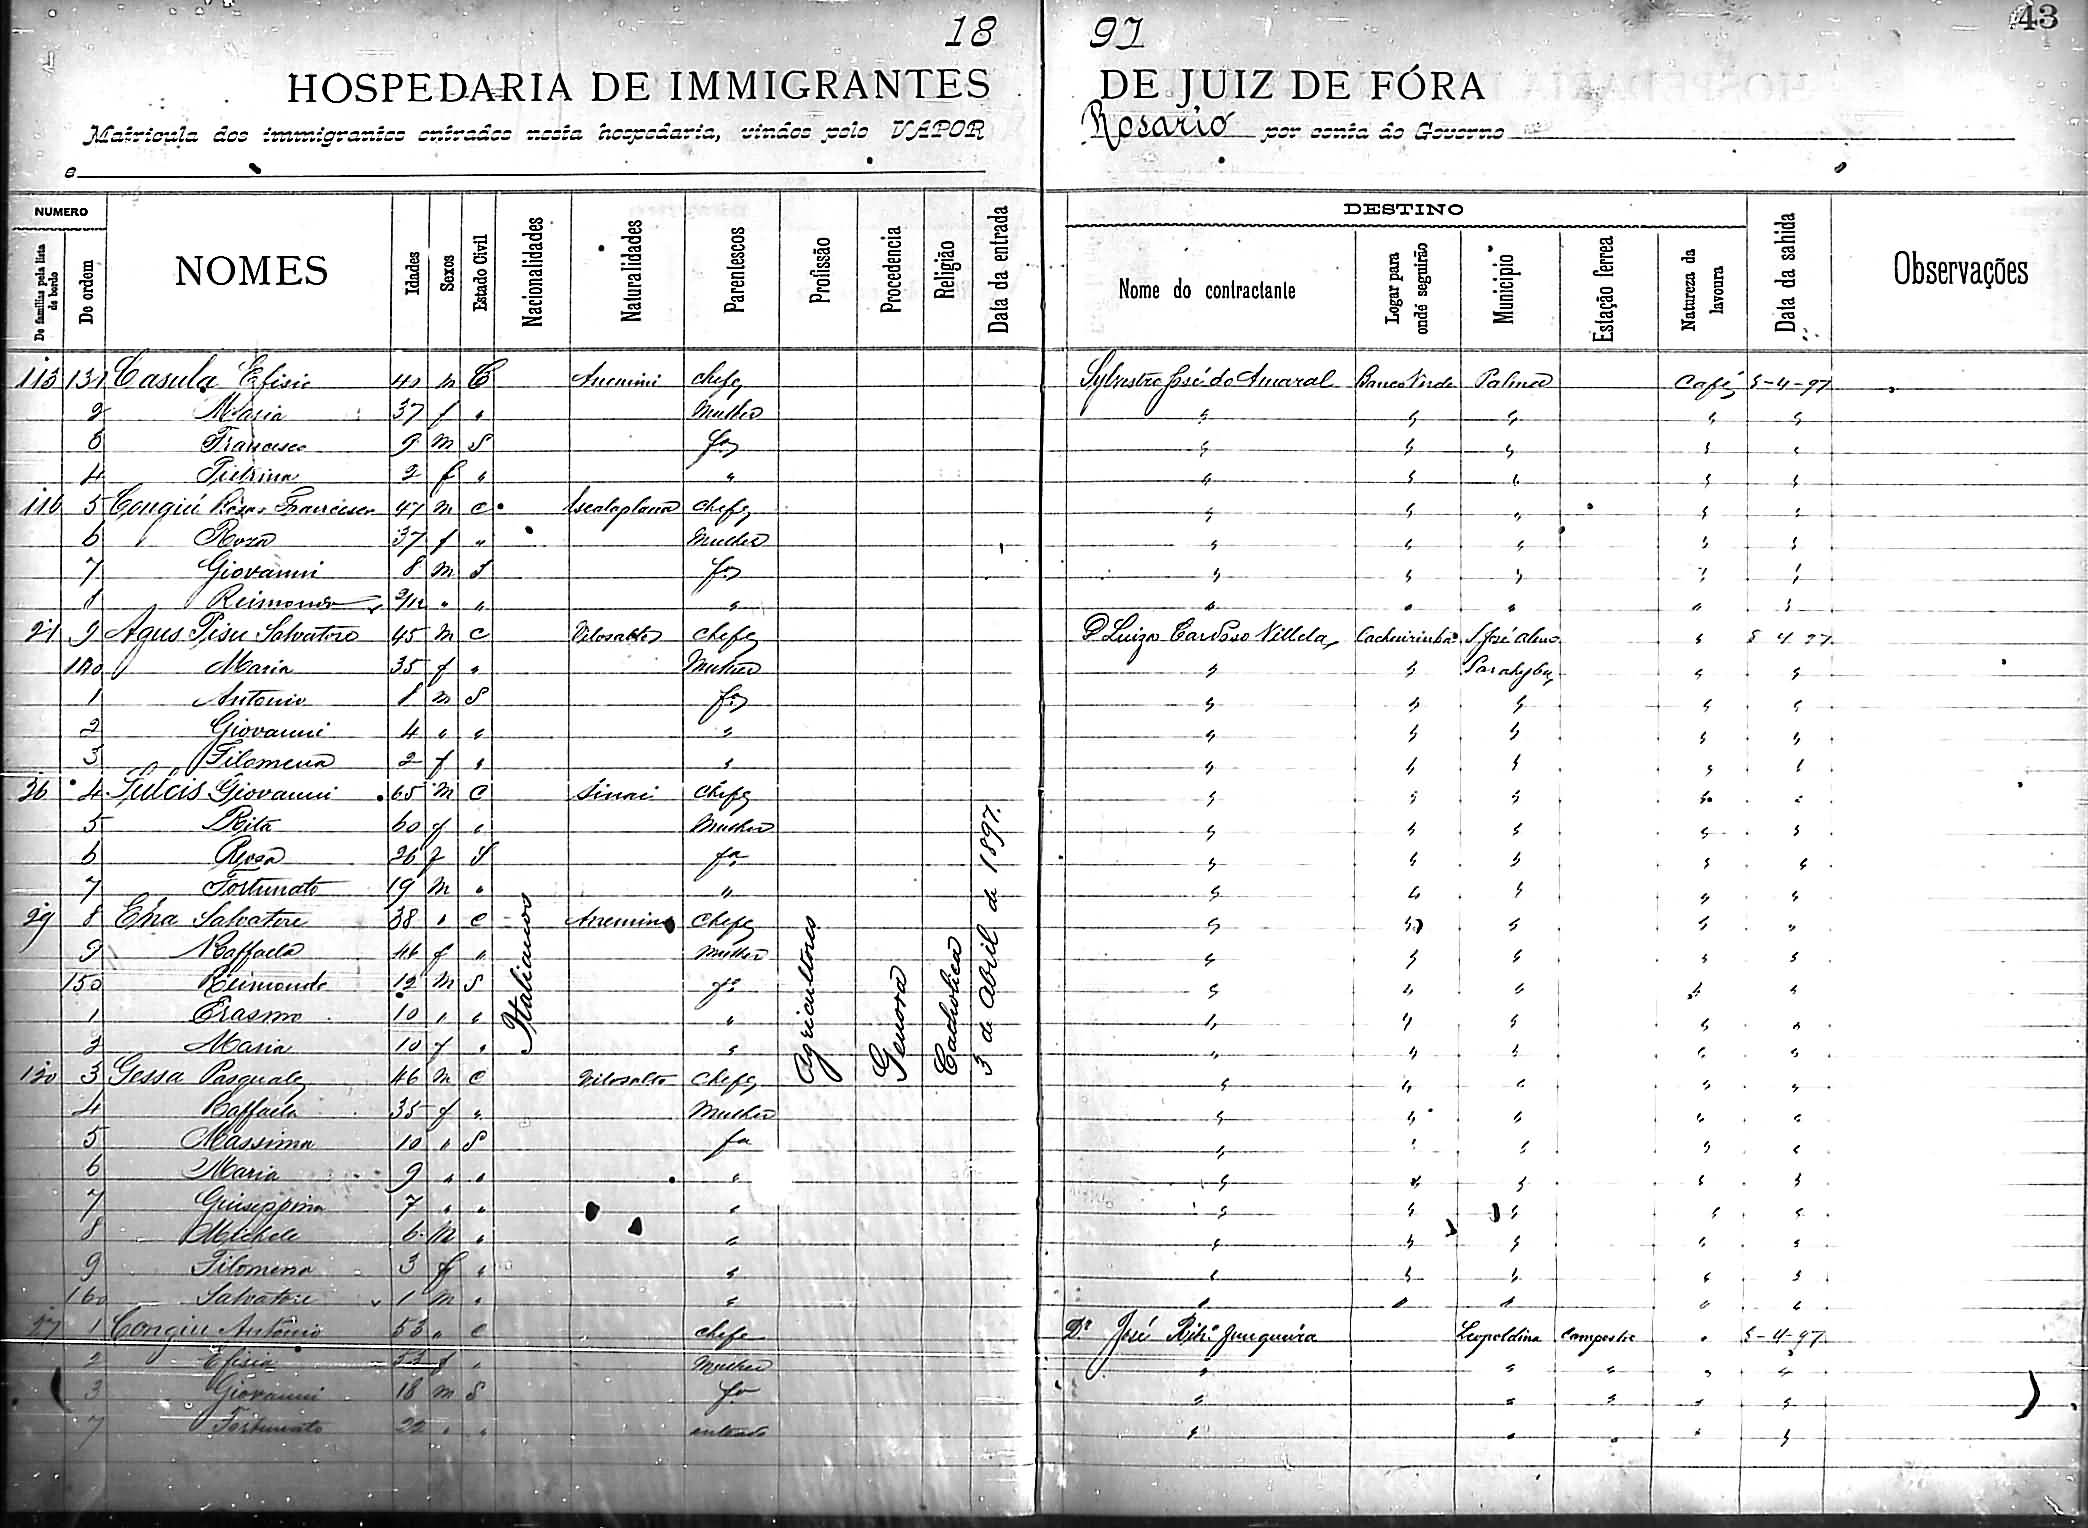 43
18 97
HOSPEDARIA DE IMMIGRANTES DE JUIZ DE FÓRA
Matricula dos immigrantes entrados nesta hospedaria, vindos pelo VAPOR Rosario por conta do Governo
e
NUMERO
De familias pela lista de bordo
De ordem
NOMES
Idades
Sexos
Estado Civil
Nacionalidades
Naturalidades
Parentescos
Profissão
Procedencia
Religião
Data da entrada
DESTINO
Nome do contractante
Logar para onde seguirão
Municipio
Estação ferrea
Natureza da lavoura
Data da sahida
Observações
113 131 Casula Efisio 40 m C Chefe Sylvestre José do Amaral Palma Café 5-4-97
2 Maria 37 f " Mulher " " " " "
3 Francesco 9 m S fo " " " " "
4 Pietrina 2 f " " " " " " "
116 5 Congiú Francesco 47 m C Escalaplana Chefe " " " " "
6 Roza 37 f " Mulher " " " " "
7 Giovanni 8 m S fo " " " " "
8 Reimondo " " " " " " " "
21 9 Agus Pisu Salvatore 45 m C Chefe D Luiza Cardoso Villela Cachoeirinha S José Alem " 5 4 97
140 Maria 35 f " Mulher " " Parahyba " "
1 Antonio 8 m S fo " " " " "
2 Giovanni 4 " " " " " " " "
3 Filomena 2 f " " " " " " "
26 4 Giovanni 65 m C Sinai Chefe " " " " "
5 Rita 60 f " Mulher " " " " "
6 Rosa 26 f S fa " " " " "
7 Fortunato 19 m " " " " " " "
29 8 Ena Salvatore 38 " C Chefe " " " " "
9 Raffaela 46 f " Mulher " " " " "
150 Reimondo 12 m S fo " " " " "
1 Erasmo 10 " " " " " " " "
2 Maria 10 f " " " " " " "
130 3 Gessa Pasquale 46 m C Vilosalto Chefe " " " " "
4 Raffaela 35 f " Mulher " " " " "
5 Massima 10 " S fa " " " " "
6 Maria 9 " " " " " " " "
7 Giuseppina 7 " " " " " " " "
8 Michele 6 m " " " " " " "
9 Filomena 3 f " " " " " " "
160 Salvatore 1 m " " " " " " "
27 1 Congiu Antonio 53 " C Chefe Dr José Ribo Junqueira Leopoldina Campestre " 5-4-97
2 Efisia 53 f " Mulher " " " " "
3 Giovanni 18 m S fo " " " " "
7 Fortunato 22 " " enteado " " " " "
Italianos
Agricultores
Genova
Catholica
3 de Abril de 1897.